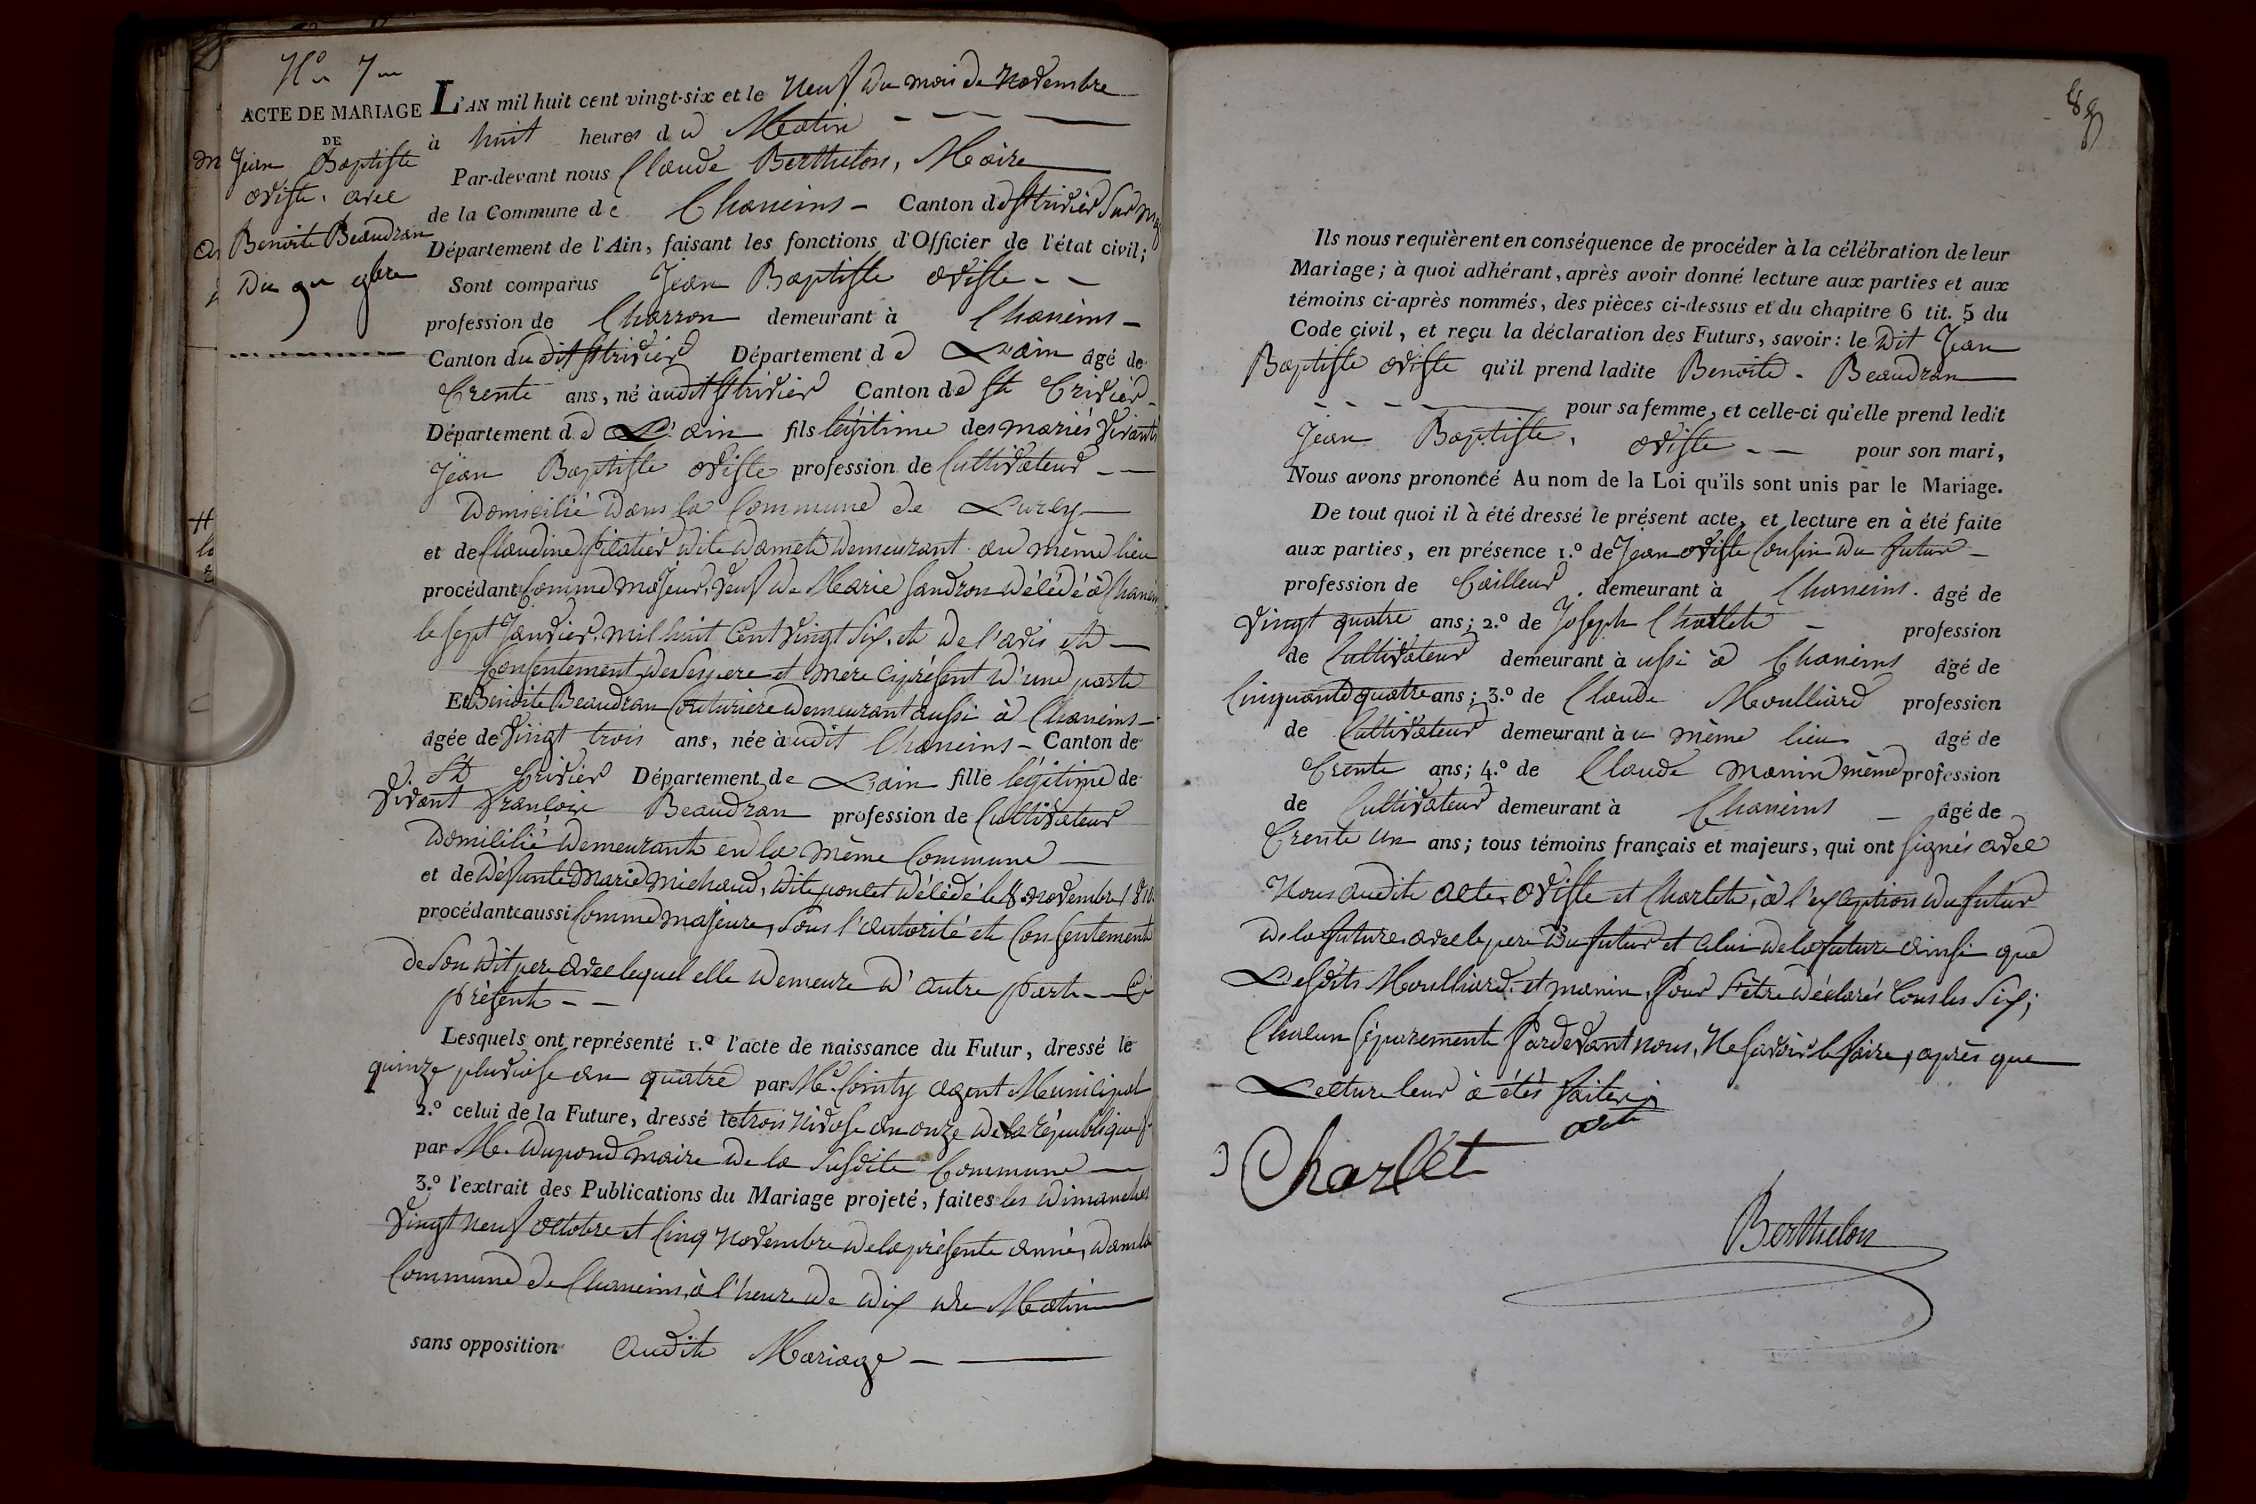 N.o 7.me
ACTE DE MARIAGE
DE
Jean Baptiste
oviste. avec
Benoite Beaudran
Du 9 9bre
L'AN mil huit cent vingt-six et le neuf du mois de novembre
à huit heures du Matin
Par-devant nous Claude Berthelon, Maire
de la Commune de Chaneins - Canton de St trivier Sur
Département de l'Ain, faisant les fonctions d'Officier de l'état civil;
Sont comparus Jean Baptiste oviste - -
profession de Charron demeurant à Chaneins -
Canton du dit St trivier Département de L'ain âgé de
trente ans, né audit St trivier Canton de St trivier -
Département de L'ain fils légitime des mariés vivants
Jean Baptiste oviste profession de Cultivateur - -
Domicilié dans la Commune de Lurcy
et de Claudine dite demeurant au même lieu
procédant Comme majeur, veuf de Marie Gandron décédé à Chaneins
le sept Janvier mil huit Cent vingt Six, et de l'avis et
Consentement de Ses pere et mère ci présent d'une part
Et Benoite Beaudran Couturière demeurant aussi à Chaneins -
âgée de vingt trois ans, née audit Chaneins - Canton de
St trivier Département de L'ain fille légitime de
vivant françois Beaudran profession de Cultivateur
Domicilié demeurant en la même Commune
et de défunte Marie Michaud, dite poncet décédé le 8 novembre
procédante aussi Comme majeure, Sous l'autorité et Consentement
de Son dit pere avec lequel elle demeure d'autre part - Ci
présent - -
Lesquels ont représenté 1.º l'acte de naissance du Futur, dressé le
quinze pluviose an quatre par Mr. agent Municipal
2.º celui de la Future, dressé le trois nivose an onze de la république f.
par Mr. Dupond maire de la Susdite Commune
3.º l'extrait des Publications du Mariage projeté, faites les dimanches
vingt neuf octobre et Cinq novembre de la présente année, dans la
Commune de Chaneins, à l'heure de dix du Matin
sans opposition audit Mariage
Ils nous requièrent en conséquence de procéder à la célébration de leur
Mariage; à quoi adhérant, après avoir donné lecture aux parties et aux
témoins ci-après nommés, des pièces ci-dessus et du chapitre 6 tit. 5 du
Code civil, et reçu la déclaration des Futurs, savoir: le dit Jean
Baptiste oviste qu'il prend ladite Benoite - Beaudran
pour sa femme, et celle-ci qu'elle prend ledit
Jean Baptiste. oviste - - pour son mari,
Nous avons prononcé Au nom de la Loi qu'ils sont unis par le Mariage.
De tout quoi il à été dressé le présent acte, et lecture en à été faite
aux parties, en présence 1.º de Jean oviste Cousin du futur -
profession de tailleur. demeurant à Chaneins. âgé de
vingt quatre ans; 2.º de Joseph Charlet - profession
de Cultivateur demeurant à ussi à Chaneins âgé de
Cinquante quatre ans; 3.º de Claude Moulliard profession
de Cultivateur demeurant à u même lieu âgé de
trente ans; 4.º de Claude manin même profession
de Cultivateur demeurant à Chaneins - âgé de
trente un ans; tous témoins français et majeurs, qui ont signés avec
Nous audit acte, oviste et Charlet, à l'exception du futur
de la future, avec le pere du futur et celui de la future ainsi que
Lesdits Moulliard, et manin, pour s'être déclarés tous les Six,
Chacun séparement pardevant nous, ne savoir le faire, après que
Lecture leur à étés faite
Charlet
Berthelon